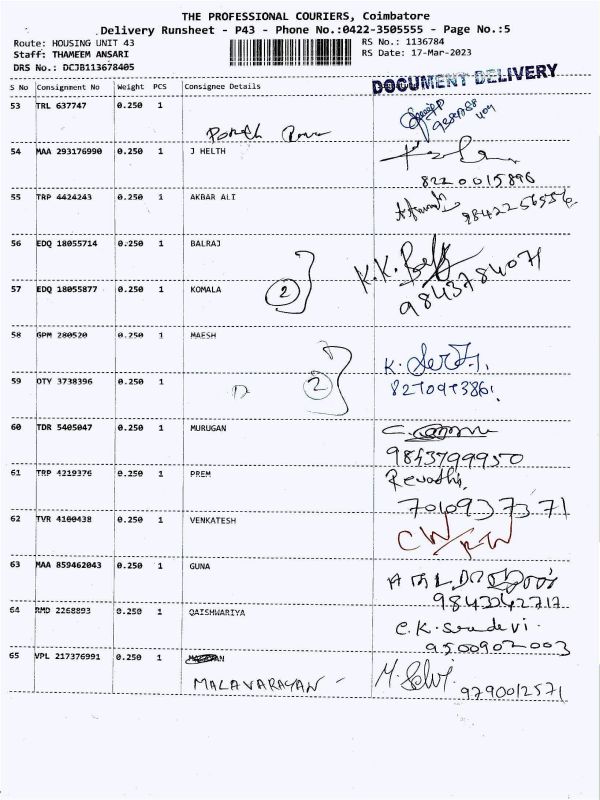 THE PROFESSIONAL COURIERS, Coimbatore
Delivery Runsheet - P43 - Phone No.:0422-3505555 - Page No.:5
Route: HOUSING UNIT 43
RS No.: 1136784
Staff: THAMEEM ANSARI
RS Date: 17-Mar-2023
DRS No.: DCJB113678405
DOCUMENT DELIVERY
S No Consignment No Weight PCS Consignee Details
53 TRL 637747 0.250 1
54 MAA 293176990 0.250 1 J HELTH
8220015896
55 TRP 4424243 0.250 1 AKBAR ALI
56 EDQ 18055714 0.250 1 BALRAJ
K.K.
57 EDQ 18055877 0.250 1 KOMALA 2
9843784071
58 GPM 280520 0.250 1 MAESH
K.
59 OTY 3738396 0.250 1 2
60 TDR 5405047 0.250 1 MURUGAN
9843799950
61 TRP 4219376 0.250 1 PREM Revathi
7010937371
62 TVR 4100438 0.250 1 VENKATESH
63 MAA 859462043 0.250 1 GUNA
9843242717
64 RMD 2268893 0.250 1 QAISHWARIYA
C.K.
9500902003
65 VPL 217376991 0.250 1
MALAVARAYAN - M. Selvi
9790012571